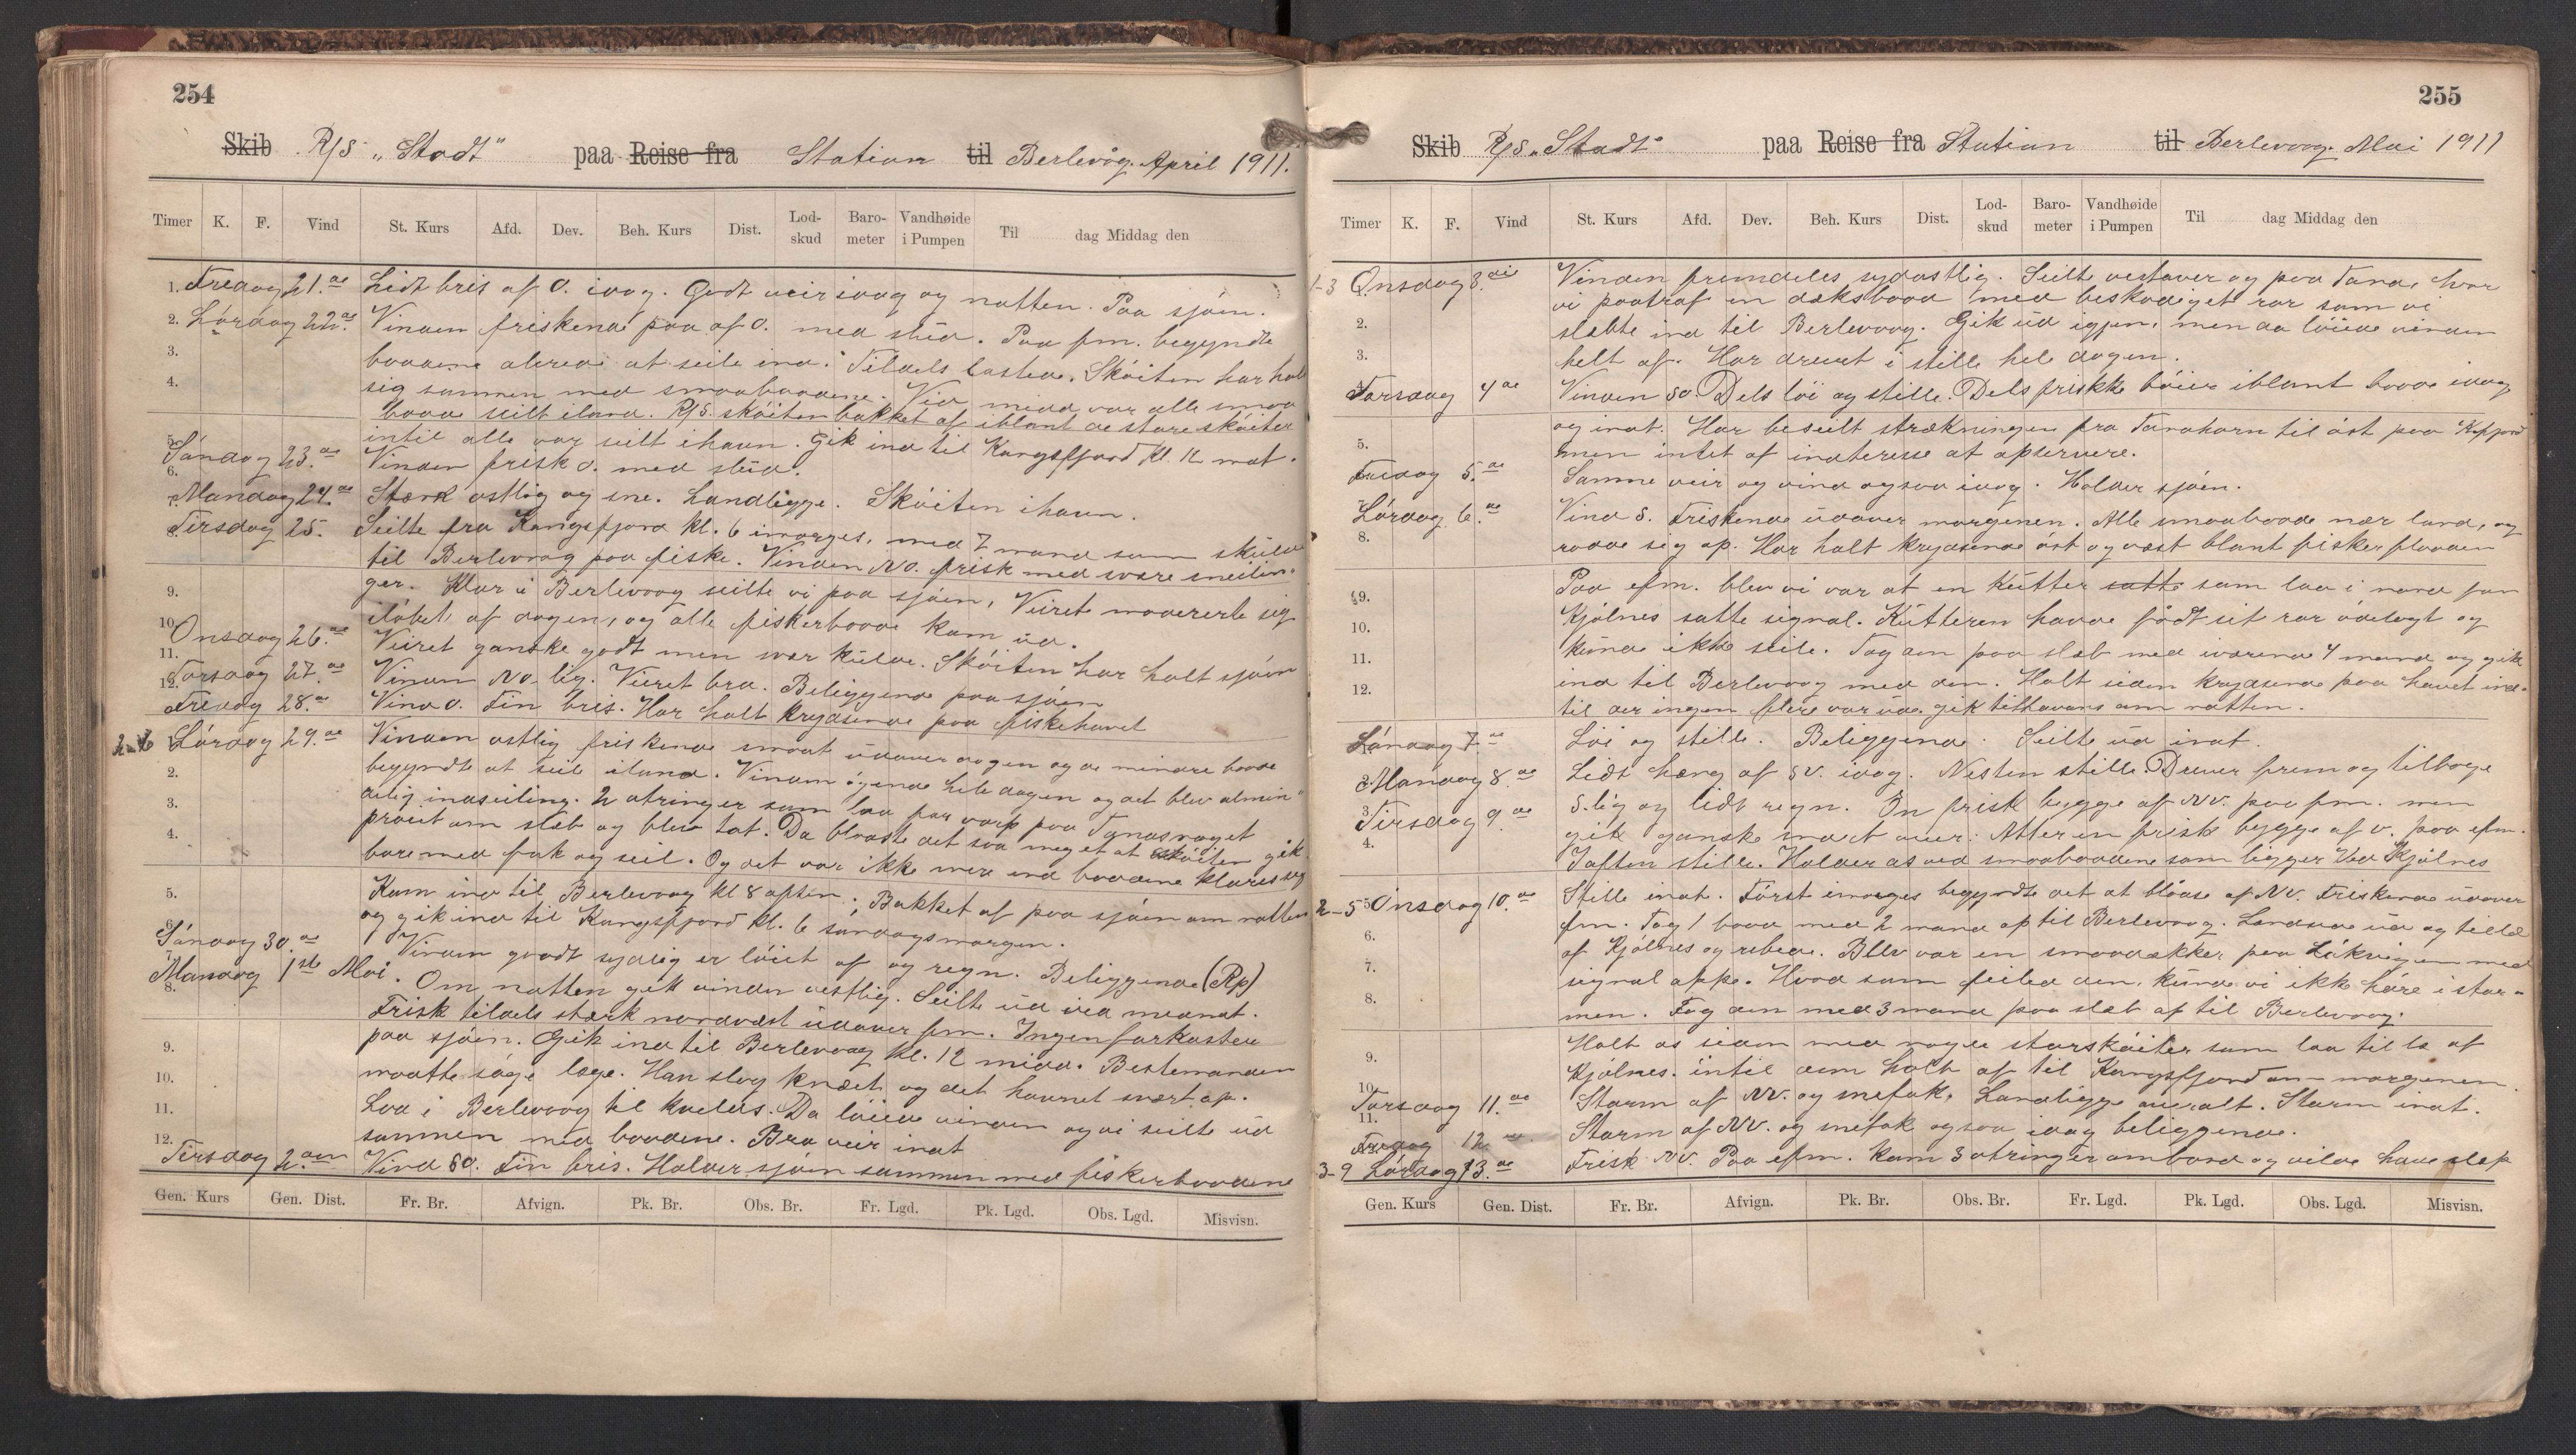 254
Skib R/S „Stadt" paa Reise fra Station til Berlevåg April 1911.
Timer K. F. Vind St. Kurs Afd. Dev. Beh. Kurs Dist. Lod-skud Baro-meter Vandhøide i Pumpen Til dag Middag den
1. Fredag 21.de Lidt bris af O. idag. Godt veir idag og natten. Paa sjøen.
2. Lørdag 22.de Vinden friskende paa af O. med snø. Paa fm. begyndte
3. baadene allerede at seile ind. Tildels lastede. Skøiten har holt
4. sig sammen med smaabaadene. Ved midd var alle smaa
baade seilt iland. R/S. skøiten bakket af iblant de store skøiter
5. intil alle var seilt ihavn. Gik ind til Kongsfjord Kl. 12 nat.
Søndag 23.de Vinden frisk O. med snø.
6.
Mandag 24.de Stærk ostlig og sne. Landligge. Skøiten ihavn.
7.
Tirsdag 25. Seilte fra Kongsfjord kl. 6 imorges, med 7 mand som skulde
8.
til Berlevaag paa fiske. Vinden NO. frisk med svære sneilin-
9. ger. Klar i Berlevaag seilte vi paa sjøen, Veiret modererte sig
10. iløbet af dagen, og alle fiskerbaade kom ud.
Onsdag 26.de Veiret ganske godt men svær kulde. Skøiten har holt sjøen
11.
Torsdag 27.de Vinden NO-lig. Veiret bra. Beliggende paa sjøen
12.
Fredag 28.de Vind O. Fin bris. Har holt krydsende paa fiskehavet
2-6 Lørdag 29.de Vinden ostlig friskende smaat udover dagen og de mindre baade
2. begyndte at seile iland. Vinden øgende hele dagen og det blev almin-
3. delig indseiling. 2 otringer som laa for varp paa Tanasnaget
4. praiet om slæb og blev tat. Da blaaste det saa meget at skøiten gik
bare med fok og seil. Og det var ikke mere end baadene klarte sig
5. Kom ind til Berlevaag kl 8 aften. Bakket af paa sjøen om natten
6. og gik ind til Kongsfjord kl. 6 søndagsmorgen.
Søndag 30.de Vinden graadt sydlig er løiet af og regn. Beliggende (Rp)
7.
Mandag 1ste Mai. Om natten gik vinden vestlig. Seilte ud ved midnat.
8.
Frisk tildels stærk nordvest udover fm. Ingen farkoster
9. paa sjøen. Gik ind til Berlevaag kl. 12 midd. Bestemanden
10. maatte søge læge. Han slog knæet og det havnet svært op.
11. Laa i Berlevaag til kvelds. Da løiede vinden og vi seilte ud
12. sammen med baadene. Bra veir inat
Tirsdag 2.den Vind SO. Fin bris. Holder sjøen sammen med fiskerbaadene
Gen. Kurs Gen. Dist. Fr. Br. Afvign. Pk. Br. Obs. Br. Fr. Lgd. Pk. Lgd. Obs. Lgd. Misvisn.
255
Skib R/S. „Stadt" paa Reise fra Station til Berlevaag. Mai 1911
Timer K. F. Vind St. Kurs Afd. Dev. Beh. Kurs Dist. Lod-skud Baro-meter Vandhøide i Pumpen Til dag Middag den
1-3 Onsdag 3.die Vinden fremdeles sydostlig. Seilte vestover og paa Tana, hvor
vi paatraf en dæksbaad med beskadiget ror som vi
2. slæbte ind til Berlevaag. Gik ud igjen, men da løiede vinden
3. helt af. Har drevet i stille hele dagen.
Torsdag 4de Vinden SO. Dels løi og stille. Dels friske bøier iblant baade idag
og inat. Har beseilt strækningen fra Tanahorn til øst paa
5. men intet af interesse at opservere.
Fredag 5.de Samme veir og vind ogsaa idag. Holder sjøen.
Lørdag 6.de Vind S. Friskende udover morgenen. Alle smaabaade nær land, og
8. rodde sig op. Har holt krydsende øst og vest blant fiskerflaaden
Paa efm. blev vi var at en kutter satte som laa i nord for
9. Kjølnes satte signal. Kutteren havde født sit ror ødelagt og
10. kunde ikke seile. Tog den paa slæb med iværende 4 mand og gik
11. ind til Berlevaag med den. Holt siden krydsende paa havet ind-
12. til der ingen flere var ude. Gik tilhavns om natten.
Søndag 7.de Løi og stille. Beliggende. Seilte ud inat.
Mandag 8.de Lidt hæng af SV. idag. Nesten stille. Drever frem og tilbage
3. Tirsdag 9.de S-lig og lidt regn. En frisk bygge af NV. paa fm. men
4. gik ganske snart over. Atter en frisk bygge af V. paa efm.
Iaften stille. Holder os ved smaabaadene som ligger ved Kjølnes
2-5 5. Onsdag 10.de Stille inat. Først imorges begyndte det at blaase af NV. Friskende udover
6. fm. Tog 1 baad med 2 mand op til Berlevaag. Landsatte ud og til
7. af Kjølnes og rebede. Blev var en smaadækker paa Løkvigen med
8. signal oppe. Hvad som feiled den, kunde vi ikke høre i stor-
men. Tog den med 3 mand paa slæb af til Berlevaag.
9. Holt os siden med nogle storskøiter som laa til læ af
10. Kjølnes. intil dem holt af til Kongsfjord om morgenen.
Torsdag 11.de Storm af NV. og snefok. Landligge overalt. Storm inat.
11.
Fredag 12.de Storm af NV. og snefok ogsaa idag beliggende.
3-9 Lørdag 13.de Frisk NV. Paa efm. kom 3 otringer ombord og vilde have slæp
Gen. Kurs Gen. Dist. Fr. Br. Afvign. Pk. Br. Obs. Br. Fr. Lgd. Pk. Lgd. Obs. Lgd. Misvisn.